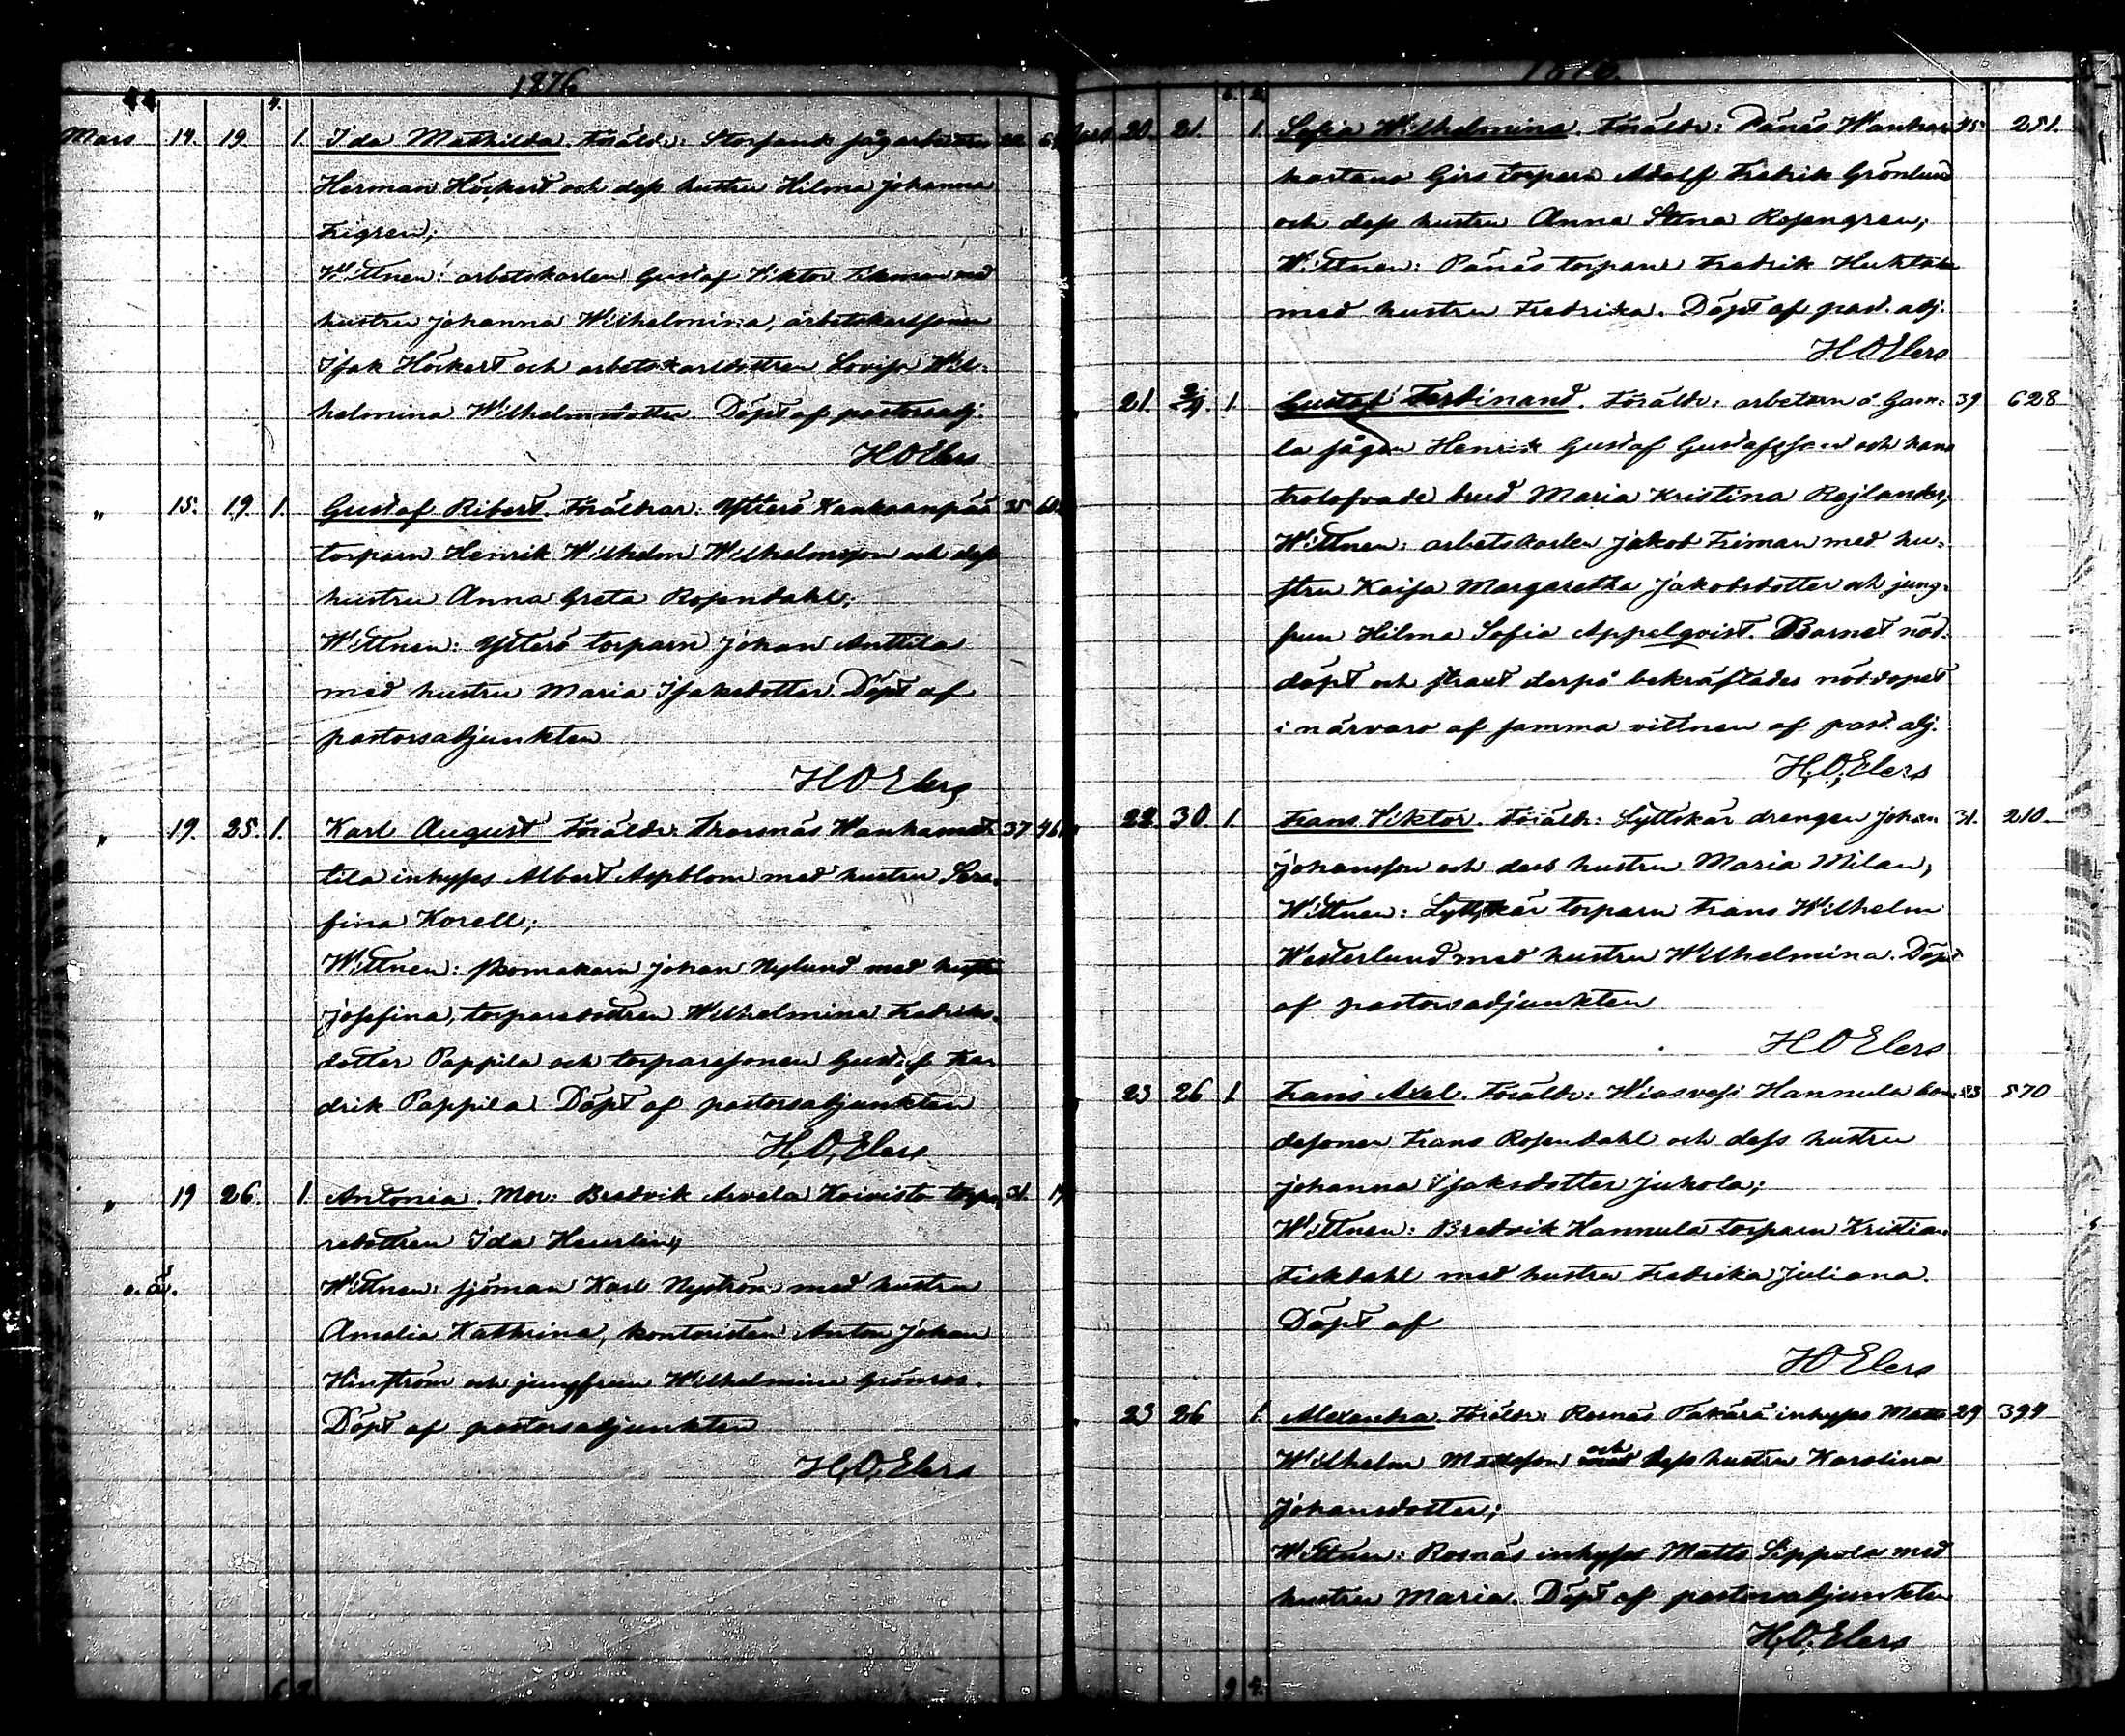 44
1876
Mars 14. 19. 1. Ida Mathilda. Föräldr: Storsand sågarbetaren 22
Herman Höckert och dess hustru Hilma Johanna
Frigren;
Wittnen: arbetskarlen Gustaf Viktor Ekman med
hustru Johanna Wilhelmina, arbetskarlssonen
Isak Höckert och arbetskarldottren Lovisa Wil-
helmina Wilhelmsdotter. Döpt af pastorsadj.
H O Elers
" 15. 19. 1. Gustaf Ribert. Föräldrar: Ytterö Kankaanpää 35
torparn Henrik Wilhelm Wilhelmsson och dess
hustru Anna Greta Rosendahl;
Wittnen: Ytterö torparn Johan Anttila
med hustru Maria Isaksdotter. Döpt af
pastorsadjunkten
H O Elers
" 19. 25. 1. Karl August. Föräldr: Thorsnäs Wanhamat- 37
tila inhyses Albert Aspblom med hustru Sera-
fina Korell;
Wittnen: skomakarn Johan Nylund med hustru
Josefina, torparedottren Wilhelmina Fredriks-
dotter Pappila och torparesonen Gustaf Fre-
drik Pappila. Döpt af pastorsadjunkten
H. O. Elers
" 19 26. 1. Antonia. Mor: Bredvik Arvela Koivisto torpa- 31.
redottren Ida Heurlin;
o. ä. Wittnen: sjöman Karl Nyström med hustru
Amalia Kathrina, kontoristen Anton Johan
Hinström och jungfrun Wilhelmina Grönroos.
Döpt af pastorsadjunkten
H. O. Elers
1876.
20. 21. 1. Sofia Wilhelmina. Föräldr: Pänäs Wanhan 45 251.
kartano Girs torparn Adolf Fredrik Grönlund
och dess hustru Anna Stina Rosengren;
Wittnen: Pänäs torparn Fredrik
med hustru Fredrika. Döpt af past. adj.
H O Elers
21. 2/4. 1. Gustaf Ferdinand. Föräldr: arbetarn å Gam- 39 628
la sågen Henrik Gustaf Gustafsson och hans
trolofvade brud Maria Kristina Rejlander;
Wittnen: arbetskarlen Jakob Friman med hu-
stru Kaisa Margaretha Jakobsdotter och jung-
frun Hilma Sofia Appelqvist. Barnet nöd-
döpt och strax derpå bekräftades nöddopet
i närvaro af samma vittnen af past. adj.
H. O. Elers
22. 30. 1. Frans Viktor. Föräldr: Lyttskär drengen Johan 31. 210.
Johansson och dess hustru Maria Milan;
Wittnen: Lyttskär torparn Frans Wilhelm
Westerlund med hustru Wilhelmina. Döpt
af pastorsadjunkten
H O Elers
23 26 1. Frans Axel. Föräldr: Wiasvesi Hannula bon- 570
desonen Frans Rosendahl och dess hustru
Johanna Isaksdotter Juhola;
Wittnen: Bredvik Hannula torparn Kristian
Fiskdahl med hustru Fredrika Juliana.
Döpt af
H O Elers
23 26 1. Alexandra. Föräldr: Rosnäs Pakärä inhyses Matts 29 394
Wilhelm Mattsson och dess hustru Karolina
Johansdotter;
Wittnen: Rosnäs inhyses Matts Sippola med
hustru Maria. Döpt af pastorsadjunkten
H. O. Elers
9 4.